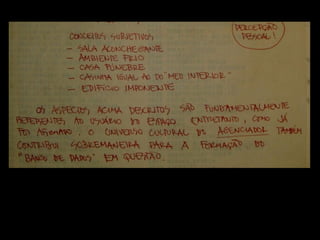 PERCEPÇÃO
PESSOAL!
CONCEITOS SUBJETIVOS
— SALA ACONCHEGANTE
— AMBIENTE FRIO
— CASA FÚNEBRE
— CASINHA IGUAL AO DO "MEU INTERIOR"
— EDIFÍCIO IMPONENTE
OS ASPECTOS ACIMA DESCRITOS SÃO FUNDAMENTALMENTE
REFERENTES AO USUÁRIO DO ESPAÇO. ENTRETANTO, COMO JÁ
FOI AFIRMADO, O UNIVERSO CULTURAL DO AGENCIADOR TAMBÉM
CONTRIBUI SOBREMANEIRA PARA A FORMAÇÃO DO
"BANCO DE DADOS" EM QUESTÃO.